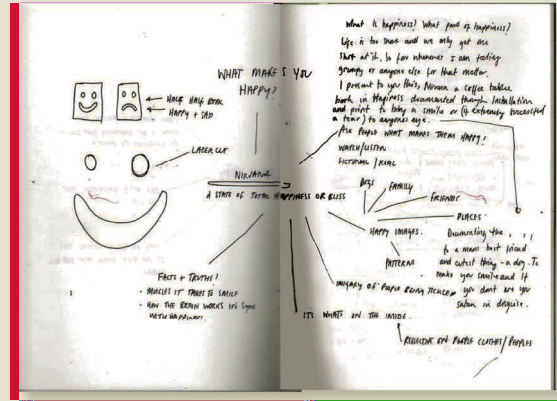 WHAT MAKES YOU
HAPPY?
HALF HALF BOOK
HAPPY + SAD
LASER CUT
NIRVANA
A STATE OF TOTAL HAPPINESS OR BLISS
FACTS + TRUTHS?
• MUSCLES IT TAKES TO SMILE
• HOW THE BRAIN WORKS IN Sync
WITH HAPPINESS.
What is happiness? What part of happiness?
Life is too short and we only get one
shot at it. So for whenever I am feeling
grumpy or anyone else for that matter.
I present to you this, Nirvana a coffee table
book in Hapiness documented though Installation
and print to bring a smile or (if extremely successful
a tear) to anyones eye.
ASK PEOPLE WHAT MAKES THEM HAPPY?
WATCH/LISTEN
FICTIONAL / REAL
DOGS
FAMILY
FRIENDS
PLACES
HAPPY IMAGES.
PATTERNS
Documenting the , , ,
to a mans best friend
and cutest thing - a dog. To
make you smile and if
you dont are you
satan in disguise.
IMAGERY OF PEOPLE BEING TICKLED
ITS WHATS ON THE INSIDE.
REFLECTIVE ON PEOPLE CLOTHES/PEOPLES